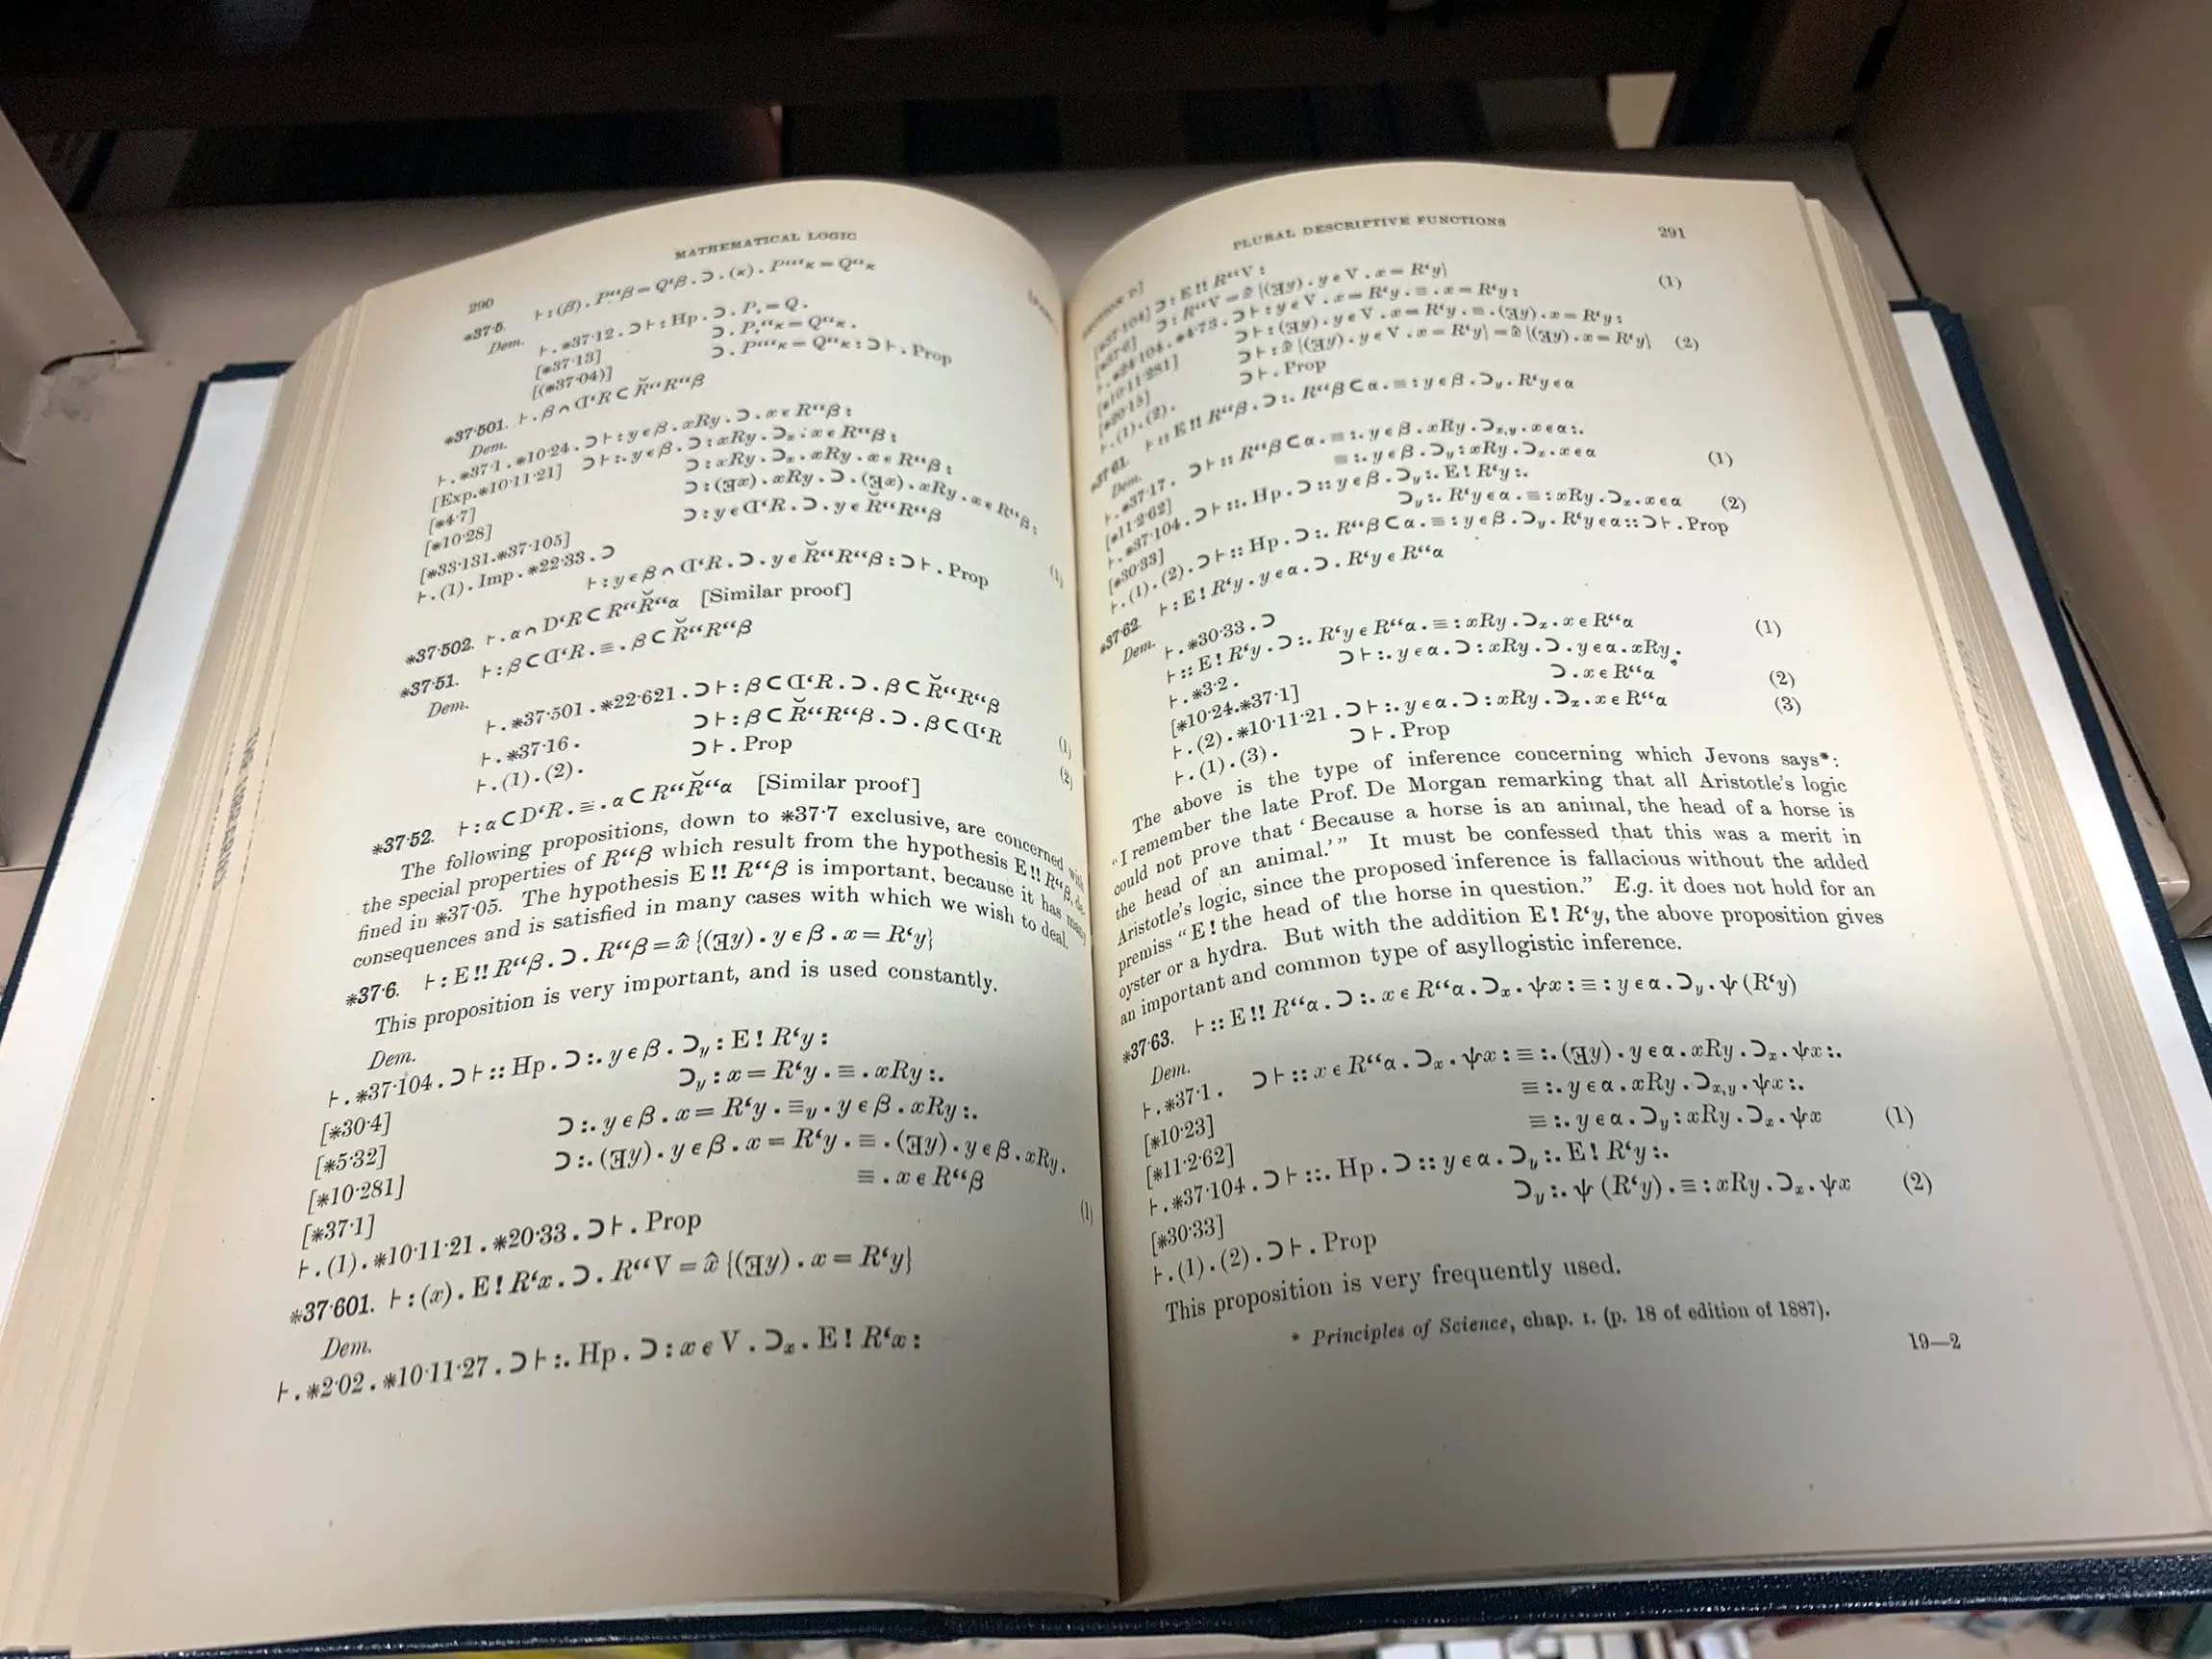 290
MATHEMATICAL LOGIC
∗37·5. ⊢ : (β) . P“β = Q‘β . ⊃ . (κ) . P“‘κ = Q“κ
Dem.
⊢ . ∗37·12 . ⊃ ⊢ : Hp . ⊃ . Pₑ = Q .
[∗37·13] ⊃ . Pₑ“κ = Q“κ .
[(∗37·04)] ⊃ . P“‘κ = Q“κ : ⊃ ⊢ . Prop
∗37·501. ⊢ . β ∩ ᗡ‘R ⊂ R̆“R“β
Dem.
⊢ . ∗37·1 . ∗10·24 . ⊃ ⊢ : y ϵ β . xRy . ⊃ . x ϵ R“β :
[Exp.∗10·11·21] ⊃ ⊢ :. y ϵ β . ⊃ : xRy . ⊃ₓ . x ϵ R“β :
[∗4·7] ⊃ : xRy . ⊃ₓ . xRy . x ϵ R“β :
[∗10·28] ⊃ : (ƎX) . xRy . ⊃ . (Ǝx) . xRy . x ϵ R“β :
[∗33·131.∗37·105] ⊃ : y ϵ ᗡ‘R . ⊃ . y ϵ R̆“R“β (1)
⊢ . (1) . Imp . ∗22·33 . ⊃
⊢ : y ϵ β ∩ ᗡ‘R . ⊃ . y ϵ R̆“R“β : ⊃ ⊢ . Prop
∗37·502. ⊢ . α ∩ D‘R ⊂ R“R̆“α [Similar proof]
∗37·51. ⊢ : β ⊂ ᗡ‘R . ≡ . β ⊂ R̆“R“β
Dem.
⊢ . ∗37·501 . ∗22·621 . ⊃ ⊢ : β ⊂ ᗡ‘R . ⊃ . β ⊂ R̆“R“β (1)
⊢ . ∗37·16 . ⊃ ⊢ : β ⊂ R̆“R“β . ⊃ . β ⊂ ᗡ‘R (2)
⊢ . (1) . (2) . ⊃ ⊢ . Prop
∗37·52. ⊢ : α ⊂ D‘R . ≡ . α ⊂ R“R̆“α [Similar proof]
The following propositions, down to ∗37·7 exclusive, are concerned with
the special properties of R“β which result from the hypothesis E !! R“β, de-
fined in ∗37·05. The hypothesis E !! R“β is important, because it has many
consequences and is satisfied in many cases with which we wish to deal.
∗37·6. ⊢ : E !! R“β . ⊃ . R“β = x̂ {(Ǝy) . y ϵ β . x = R‘y}
This proposition is very important, and is used constantly.
Dem.
⊢ . ∗37·104 . ⊃ ⊢ :: Hp . ⊃ :. y ϵ β . ⊃y : E ! R‘y :
[∗30·4] ⊃y : x = R‘y . ≡ . xRy :.
[∗5·32] ⊃ :. y ϵ β . x = R‘y . ≡y . y ϵ β . xRy :.
[∗10·281] ⊃ :. (Ǝy) . y ϵ β . x = R‘y . ≡ . (Ǝy) . y ϵ β . xRy .
[∗37·1] ≡ . x ϵ R“β (1)
⊢ . (1) . ∗10·11·21 . ∗20·33 . ⊃ ⊢ . Prop
∗37·601. ⊢ : (x) . E ! R‘x . ⊃ . R“V = x̂ {(Ǝy) . x = R‘y}
Dem.
⊢ . ∗2·02 . ∗10·11·27 . ⊃ ⊢ :. Hp . ⊃ : x ϵ V . ⊃ₓ . E ! R‘x :
PLURAL DESCRIPTIVE FUNCTIONS
291
[∗37·104] ⊃ : E !! R“V :
[∗37·6] ⊃ : R“V = x̂ {(Ǝy) . y ϵ V . x = R‘y} (1)
⊢ . ∗24·104 . ∗4·73 . ⊃ ⊢ : y ϵ V . x = R‘y . ≡ . x = R‘y :
[∗10·11·281] ⊃ ⊢ : (Ǝy) . y ϵ V . x = R‘y . ≡ . (Ǝy) . x = R‘y :
[∗20·15] ⊃ ⊢ : x̂ {(Ǝy) . y ϵ V . x = R‘y} = x̂ {(Ǝy) . x = R‘y} (2)
⊢ . (1) . (2) . ⊃ ⊢ . Prop
∗37·61. ⊢ :: E !! R“β . ⊃ :. R“β ⊂ α . ≡ : y ϵ β . ⊃y . R‘y ϵ α
Dem.
⊢ . ∗37·17 . ⊃ ⊢ :: R“β ⊂ α . ≡ :. y ϵ β . xRy . ⊃x,y . x ϵ α :.
[∗11·2·62] ≡ :. y ϵ β . ⊃y : xRy . ⊃ₓ . x ϵ α (1)
⊢ . ∗37·104 . ⊃ ⊢ ::. Hp . ⊃ :: y ϵ β . ⊃y :. E ! R‘y :.
[∗30·33] ⊃y :. R‘y ϵ α . ≡ : xRy . ⊃ₓ . x ϵ α (2)
⊢ . (1) . (2) . ⊃ ⊢ :: Hp . ⊃ :. R“β ⊂ α . ≡ : y ϵ β . ⊃y . R‘y ϵ α :: ⊃ ⊢ . Prop
∗37·62. ⊢ : E ! R‘y . y ϵ α . ⊃ . R‘y ϵ R“α
Dem.
⊢ . ∗30·33 . ⊃
⊢ :: E ! R‘y . ⊃ :. R‘y ϵ R“α . ≡ : xRy . ⊃ₓ . x ϵ R“α (1)
⊢ . ∗3·2 . ⊃ ⊢ :. y ϵ α . ⊃ : xRy . ⊃ . y ϵ α . xRy .
[∗10·24.∗37·1] ⊃ . x ϵ R“α (2)
⊢ . (2) . ∗10·11·21 . ⊃ ⊢ :. y ϵ α . ⊃ : xRy . ⊃ₓ . x ϵ R“α (3)
⊢ . (1) . (3) . ⊃ ⊢ . Prop
The above is the type of inference concerning which Jevons says*:
“I remember the late Prof. De Morgan remarking that all Aristotle’s logic
could not prove that ‘Because a horse is an animal, the head of a horse is
the head of an animal.’” It must be confessed that this was a merit in
Aristotle’s logic, since the proposed inference is fallacious without the added
premiss “E ! the head of the horse in question.” E.g. it does not hold for an
oyster or a hydra. But with the addition E ! R‘y, the above proposition gives
an important and common type of asyllogistic inference.
∗37·63. ⊢ :: E !! R“α . ⊃ :. x ϵ R“α . ⊃ₓ . ψx : ≡ : y ϵ α . ⊃y . ψ (R‘y)
Dem.
⊢ . ∗37·1 . ⊃ ⊢ :: x ϵ R“α . ⊃ₓ . ψx : ≡ :. (Ǝy) . y ϵ α . xRy . ⊃ₓ . ψx :.
[∗10·23] ≡ :. y ϵ α . xRy . ⊃x,y . ψx :.
[∗11·2·62] ≡ :. y ϵ α . ⊃y : xRy . ⊃ₓ . ψx (1)
⊢ . ∗37·104 . ⊃ ⊢ ::. Hp . ⊃ :: y ϵ α . ⊃y :. E ! R‘y :.
[∗30·33] ⊃y :. ψ (R‘y) . ≡ : xRy . ⊃ₓ . ψx (2)
⊢ . (1) . (2) . ⊃ ⊢ . Prop
This proposition is very frequently used.
* Principles of Science, chap. I. (p. 18 of edition of 1887).
19—2